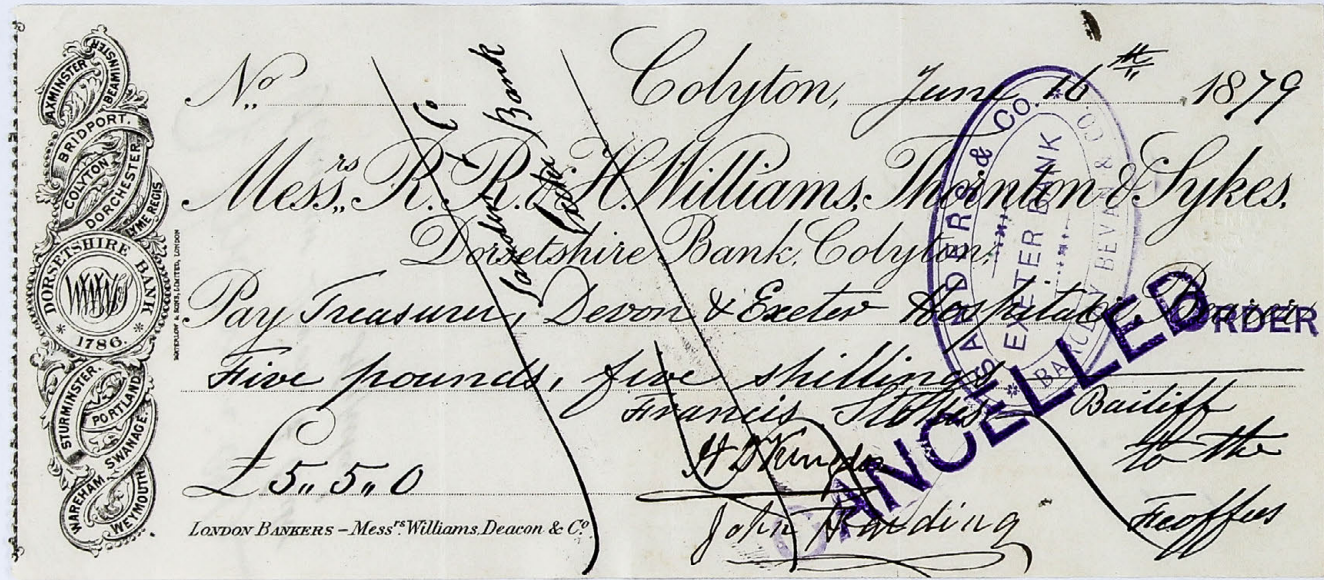 AXMINSTER
BEAMINSTER
BRIDPORT.
COLYTON
DORCHESTER
LYME REGIS
DORSETSHIRE BANK
1786
STURMINSTER.
PORTLAND
SWANAGE.
WAREHAM
WEYMOUTH
WATERLOW & SONS, LIMITED, LONDON
No.
Colyton, June 16th 1879
Messrs. R. R. & H. Williams, Thornton & Sykes.
Dorsetshire Bank, Colyton.
Pay Treasurer, Devon & Exeter Hospital or Bearer
ORDER
Five pounds, five shillings
Francis Bailiff
H D to the
John Harding Feoffees
£5,, 5,, 0
LONDON BANKERS – Messrs. Williams, Deacon & Co.
Sanders & Co
Exeter Bank
SANDERS & CO.
EXETER BANK
BARCLAY BEVAN & CO
CANCELLED